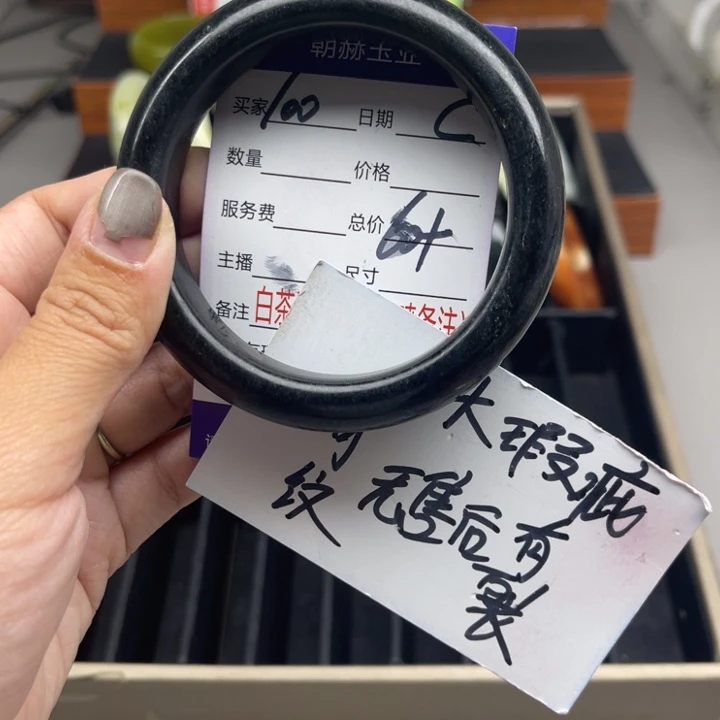 朝赫玉业
买家 100 日期
数量 价格
服务费 总价 64
主播 尺寸
备注 白茶 备注
大瑕疵
无售后有
裂
纹